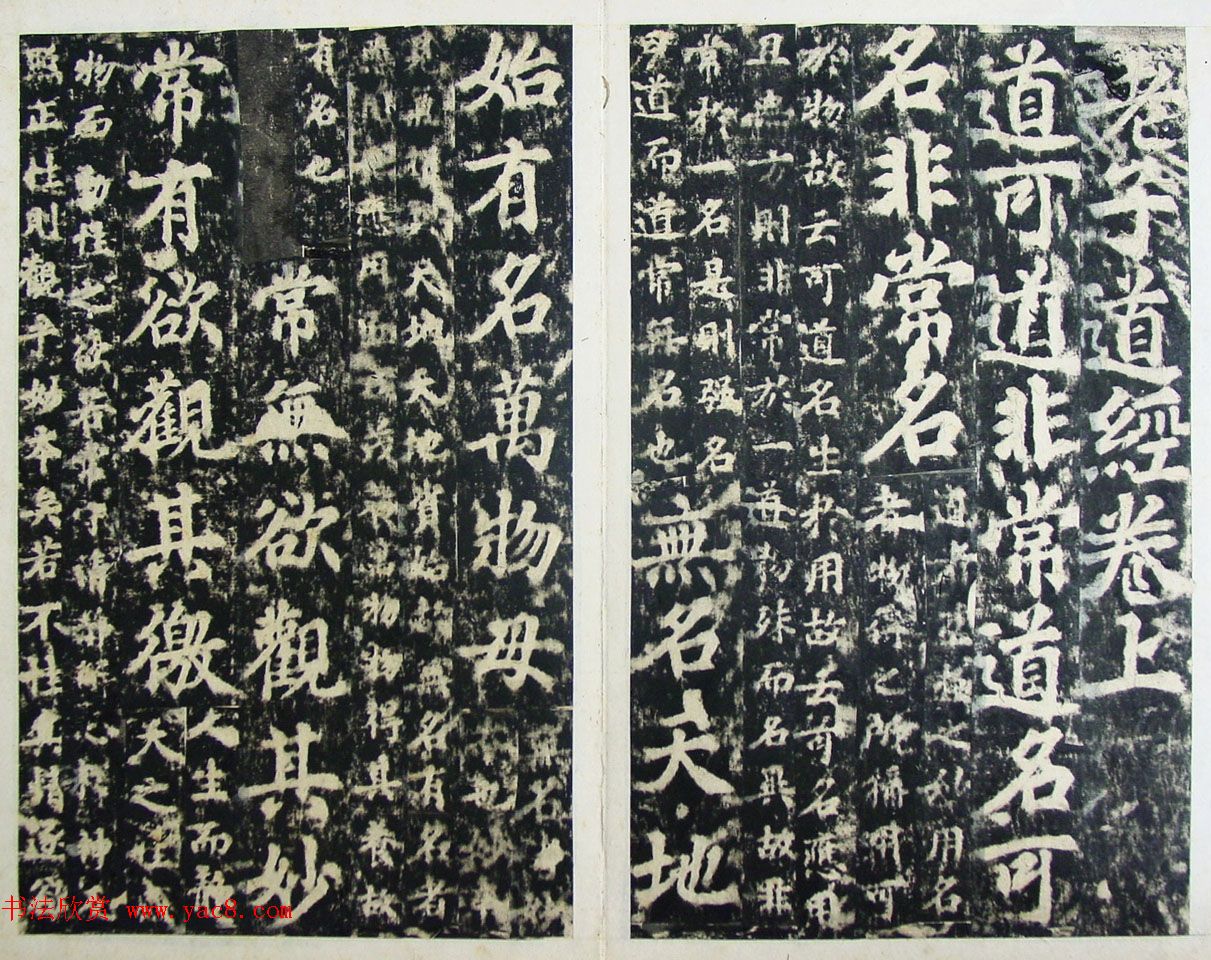 老子道經卷上
道可道非常道名可
名非常名
之妙用名
者物得之所稱用可
於物故云可道名生於用故云可名應用
且無方則非常於一道物殊而名異故非
常於一名是則强名
道而道常無名也
無名天地
始有名萬物母
天地天地資始故無名有名者
應用 物物得其養故
有名也
常無欲觀其妙
常有欲觀其徼
人生而靜
天之性
物而動性之欲若常守清靜解心釋神
照正性則觀乎妙本矣若不性其情逐欲
书法欣赏 www.yac8.com